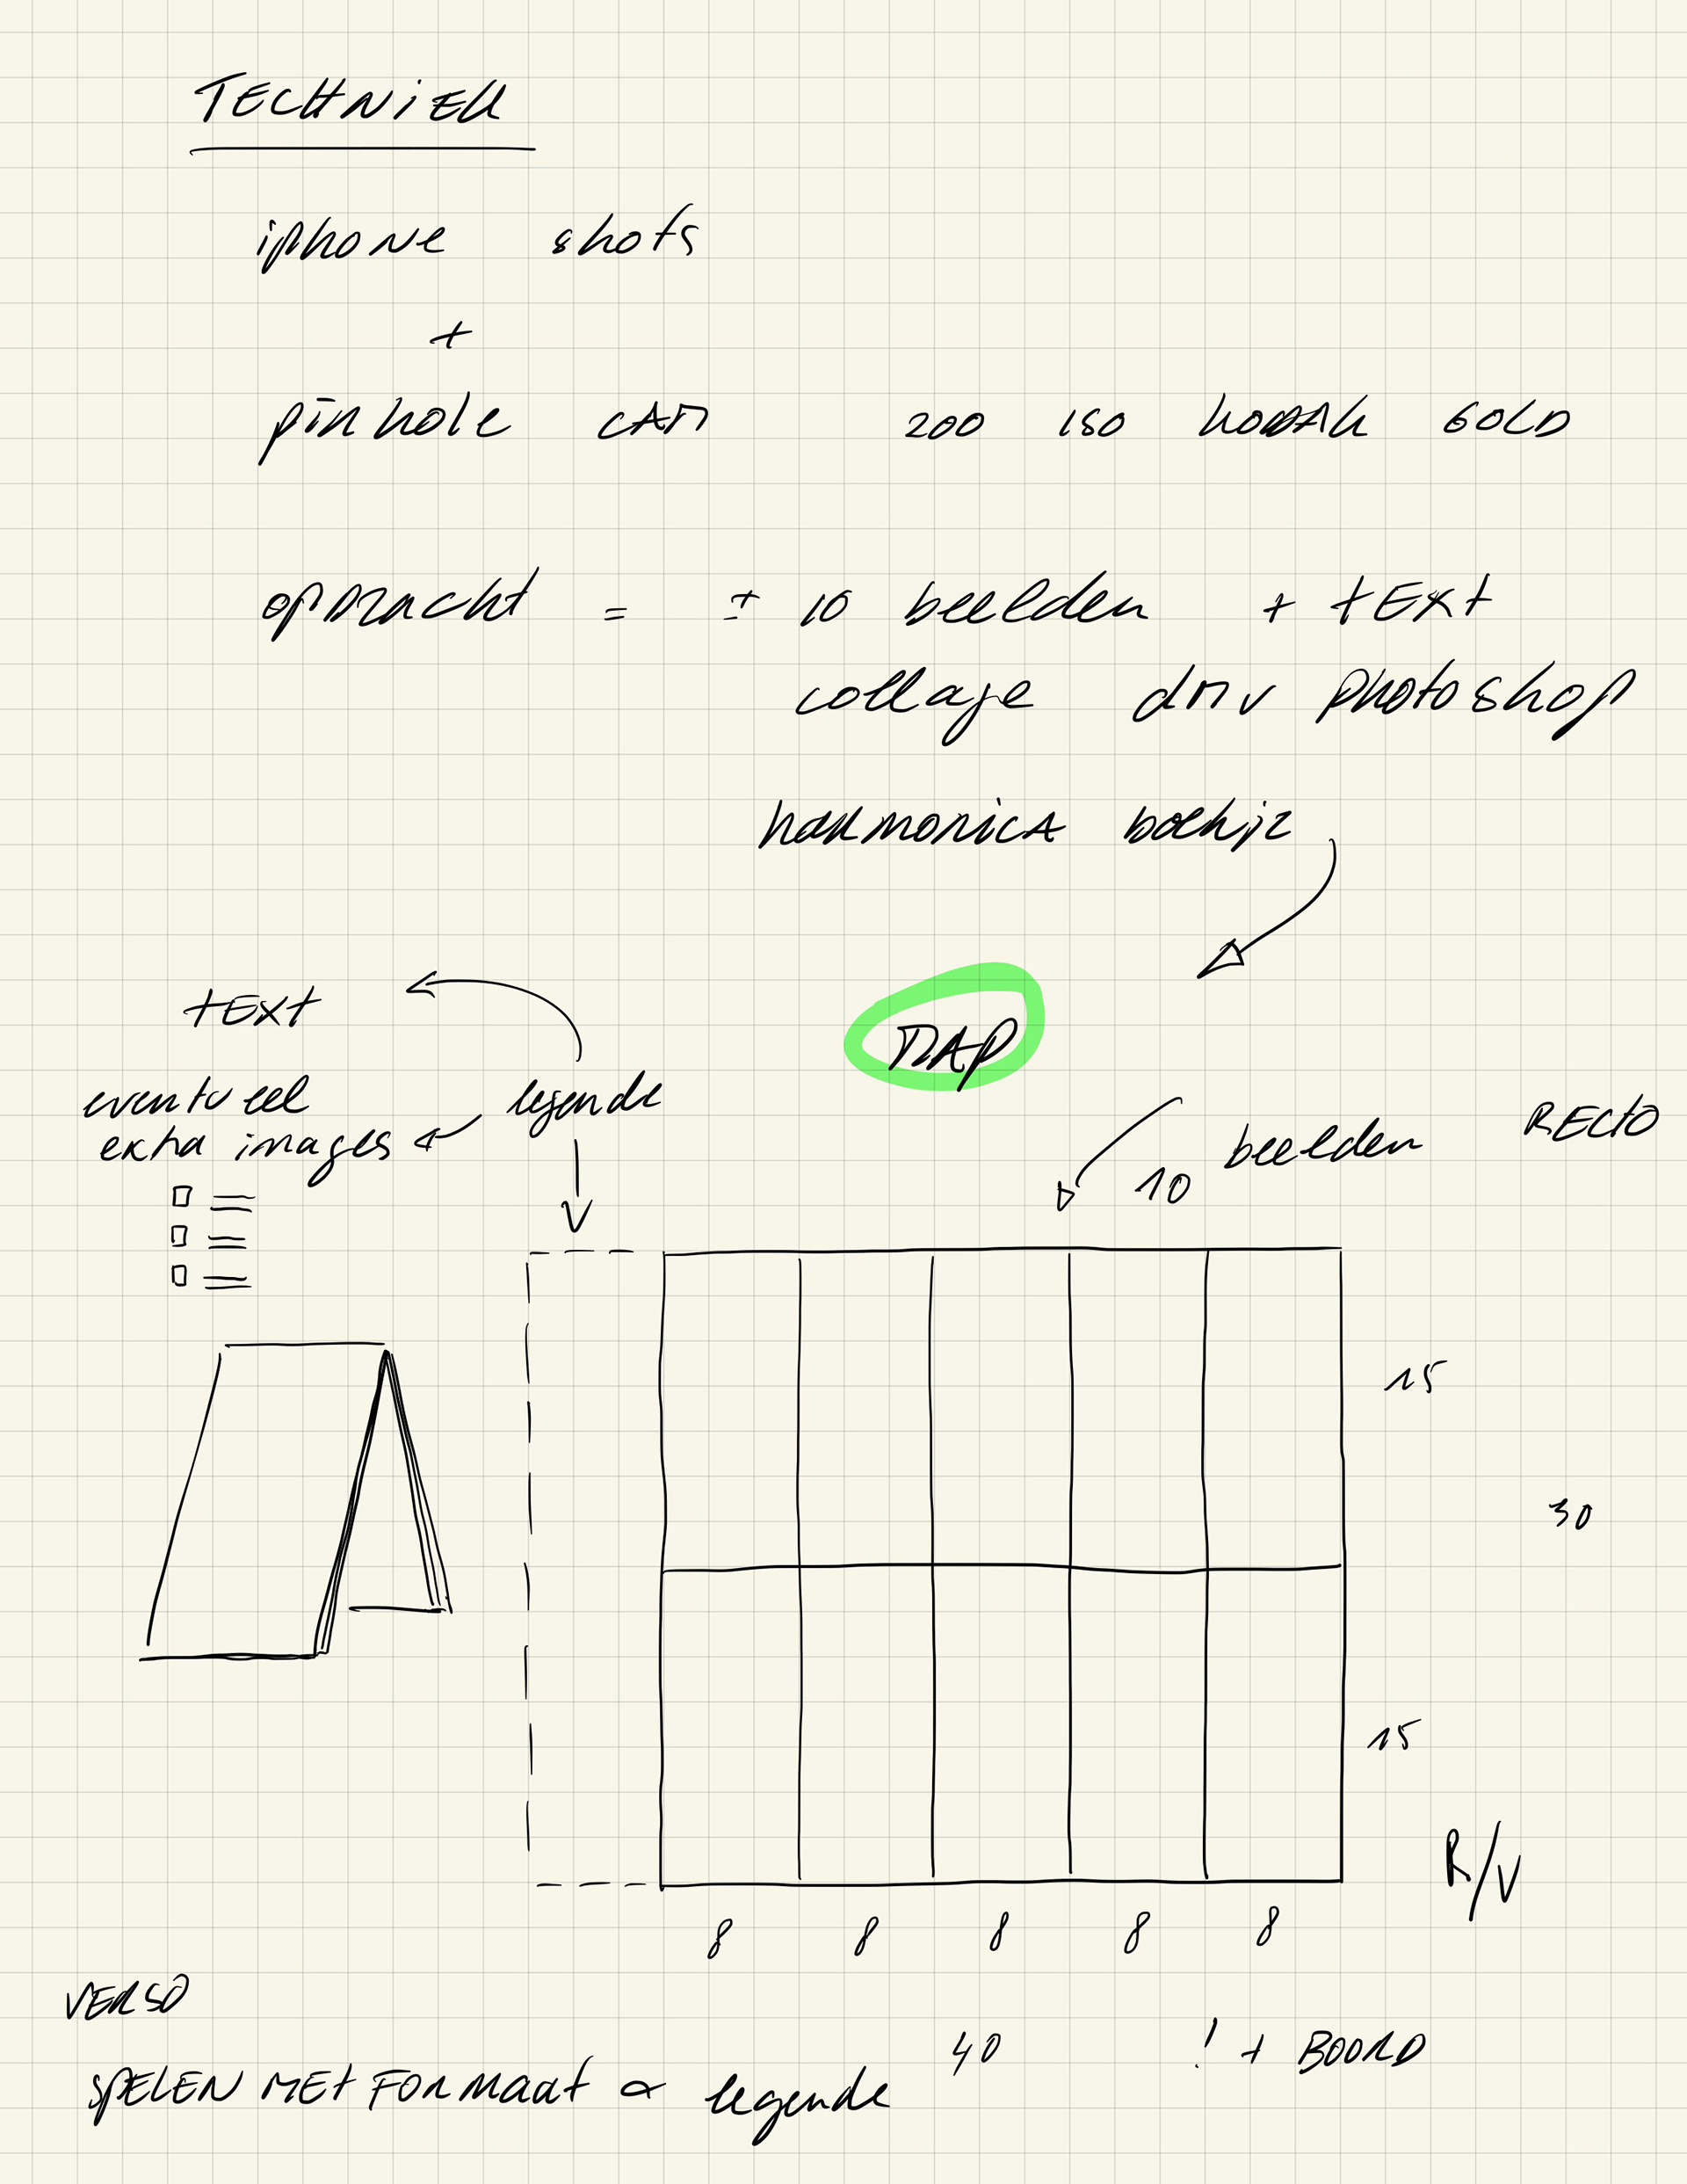 TECHNIEK
iphone shots
+
pinhole CAM 200 ISO KODAK GOLD
opdracht = ± 10 beelden + tExt
collage dmv photoshop
harmonica boekje
tExt
MAP
eventueel
extra images
legende
10 beelden
RECTO
15
30
15
R/V
8 8 8 8 8
VERSO
40
! + BOORD
SPELEN MET FORMaat & legende